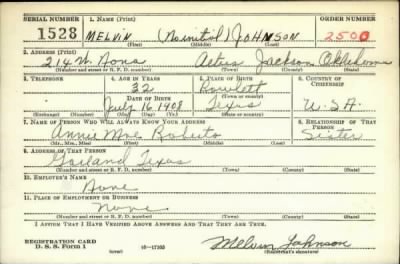 SERIAL NUMBER 1. NAME (Print) ORDER NUMBER
1528 MELVIN (No initial) JOHNSON 2500
(First) (Middle) (Last)
2. ADDRESS (Print)
214 W. Altus Jackson Oklahoma
(Number and street or R. F. D. number) (Town) (County) (State)
3. TELEPHONE 4. AGE IN YEARS 5. PLACE OF BIRTH 6. COUNTRY OF CITIZENSHIP
32 Rowlett
DATE OF BIRTH (Town or county)
July 16 1908 Texas U.S.A.
(Exchange) (Number) (Mo.) (Day) (Yr.) (State or country)
7. NAME OF PERSON WHO WILL ALWAYS KNOW YOUR ADDRESS 8. RELATIONSHIP OF THAT PERSON
Annie Mae Roberts Sister
(Mr., Mrs., Miss) (First) (Middle) (Last)
9. ADDRESS OF THAT PERSON
Garland Texas
(Number and street or R. F. D. number) (Town) (County) (State)
10. EMPLOYER'S NAME
None
11. PLACE OF EMPLOYMENT OR BUSINESS
None
(Number and street or R. F. D. number) (Town) (County) (State)
I AFFIRM THAT I HAVE VERIFIED ABOVE ANSWERS AND THAT THEY ARE TRUE.
REGISTRATION CARD
D. S. S. Form 1 (over) 16-17105 Melvin Johnson
(Registrant's signature)